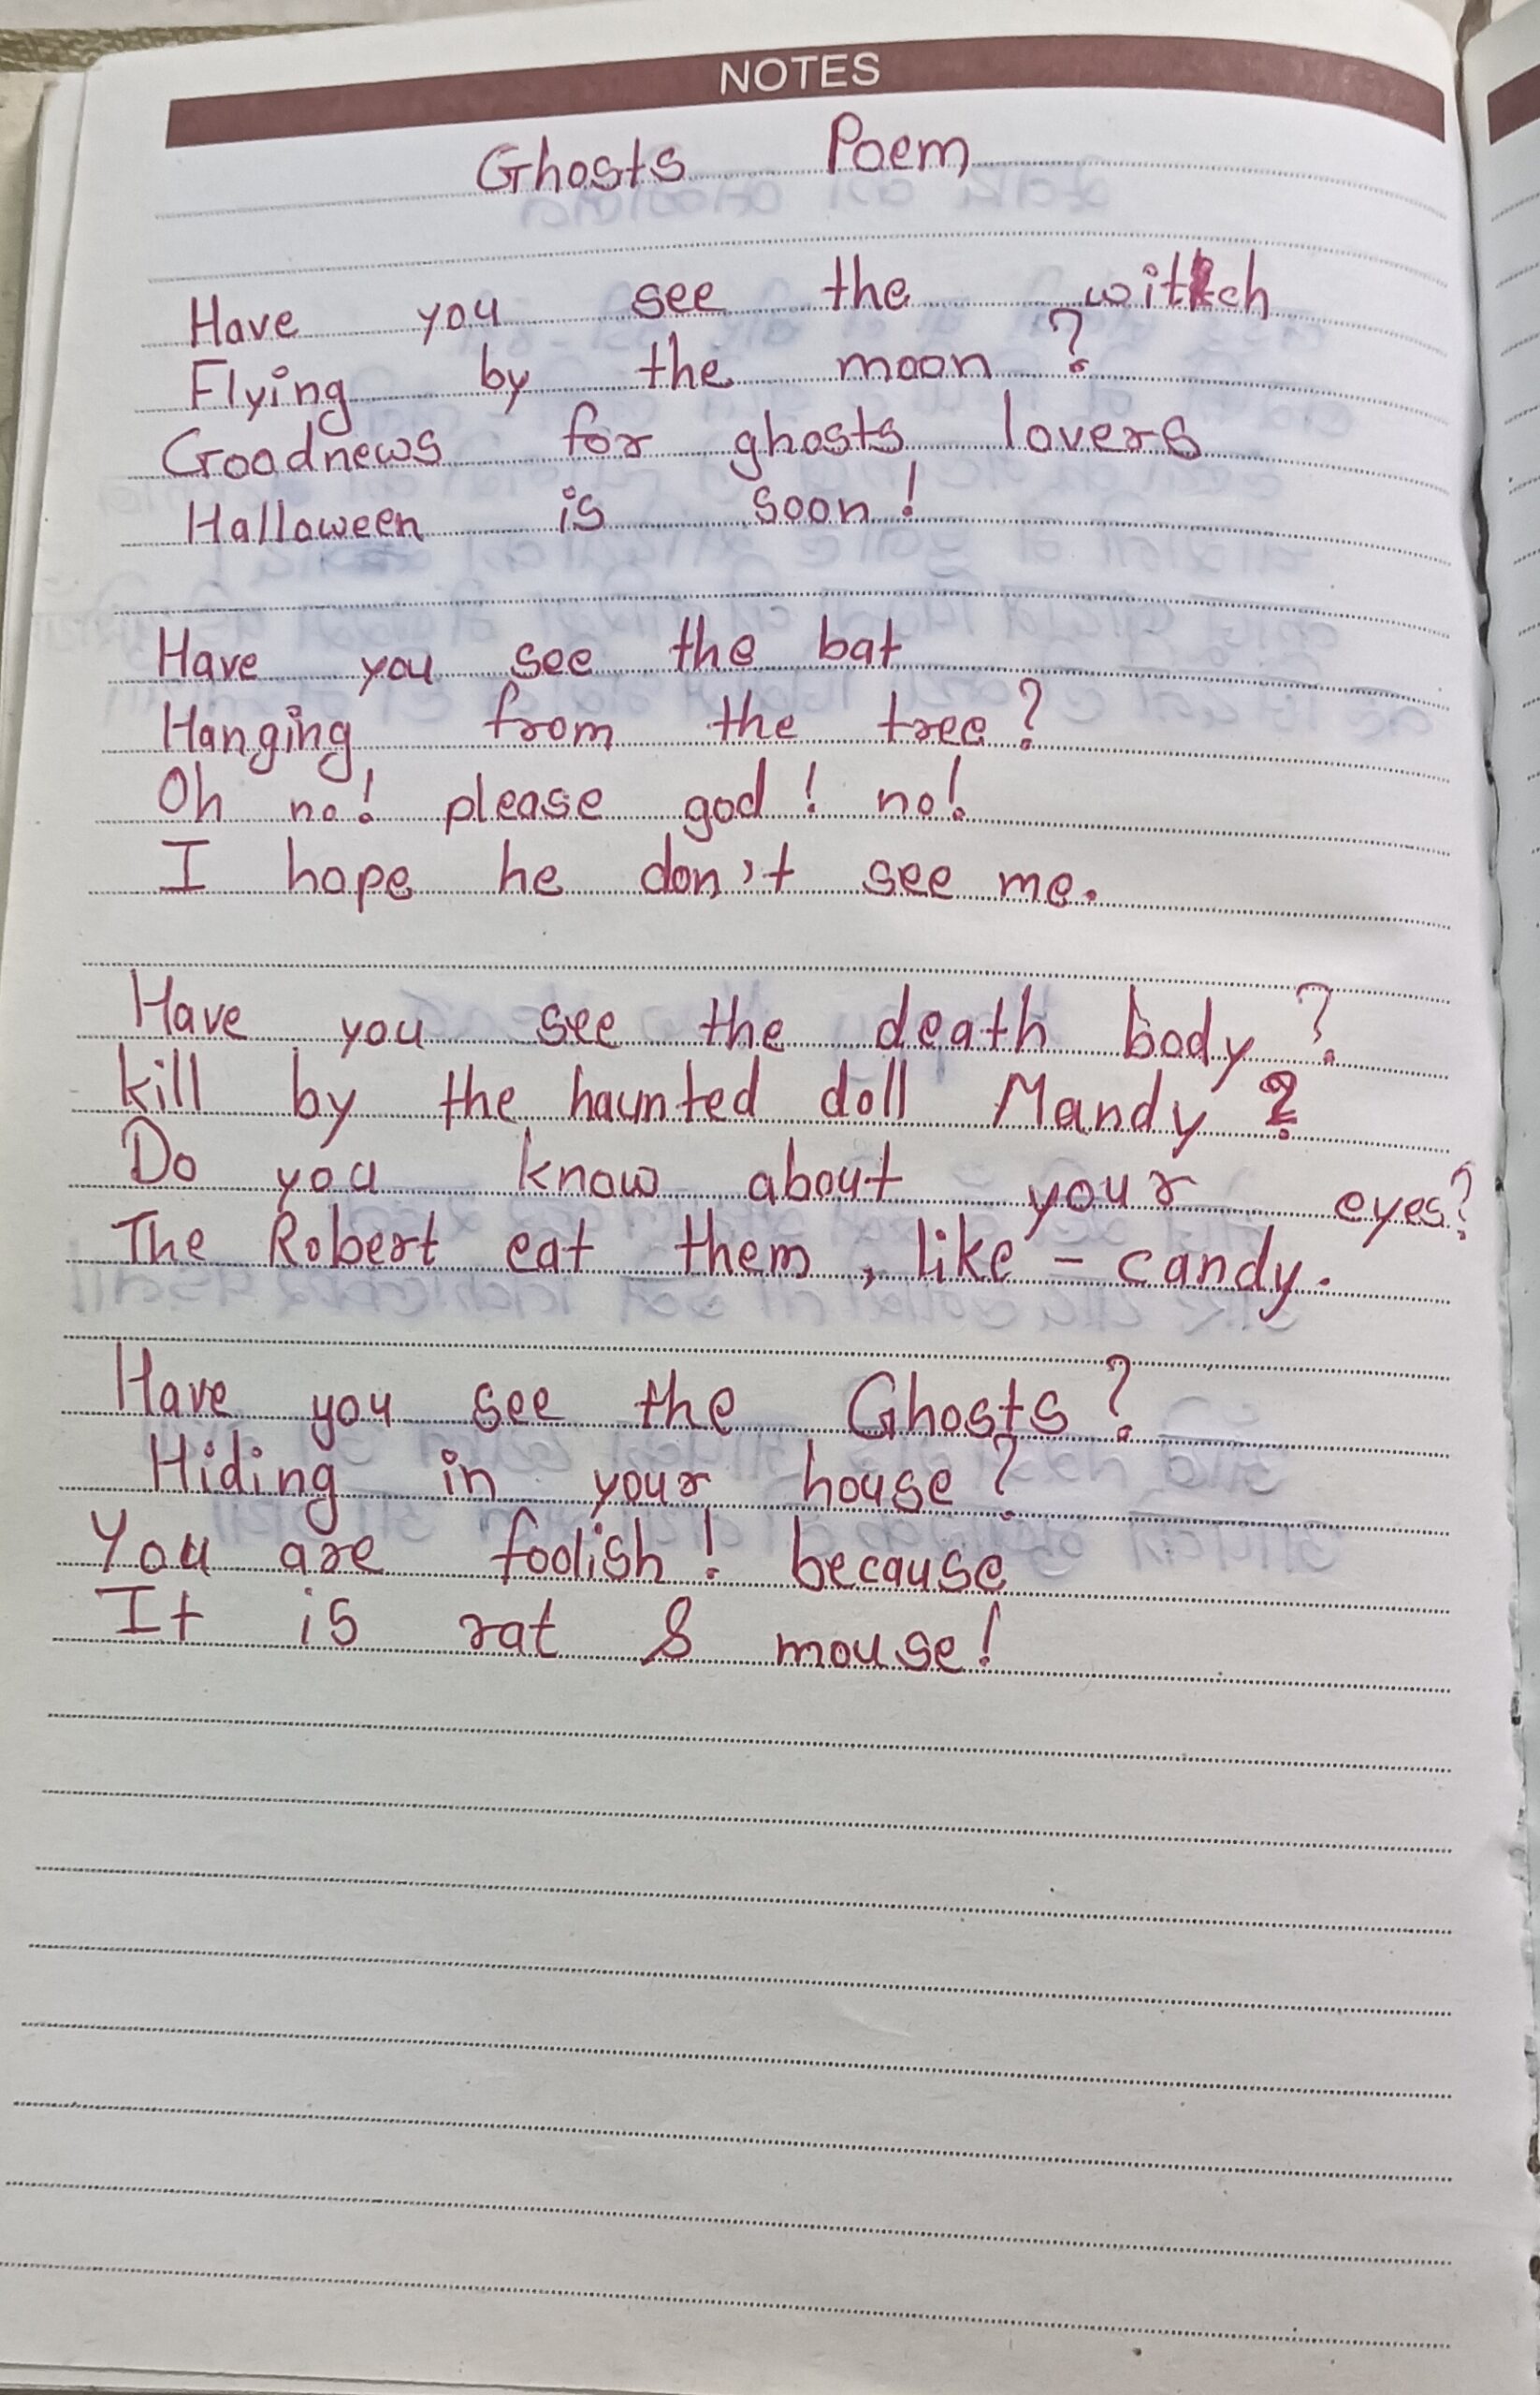 NOTES
Ghosts Poem
Have you see the witch
Flying by the moon?
Goodnews for ghosts lovers
Halloween is soon!
Have you see the bat
Hanging from the tree?
Oh no! please god! no!
I hope he don't see me.
Have you see the death body?
kill by the haunted doll Mandy?
Do you know about your eyes?
The Robert eat them, like - candy.
Have you see the Ghosts?
Hiding in your house?
You are foolish! because
It is rat & mouse!